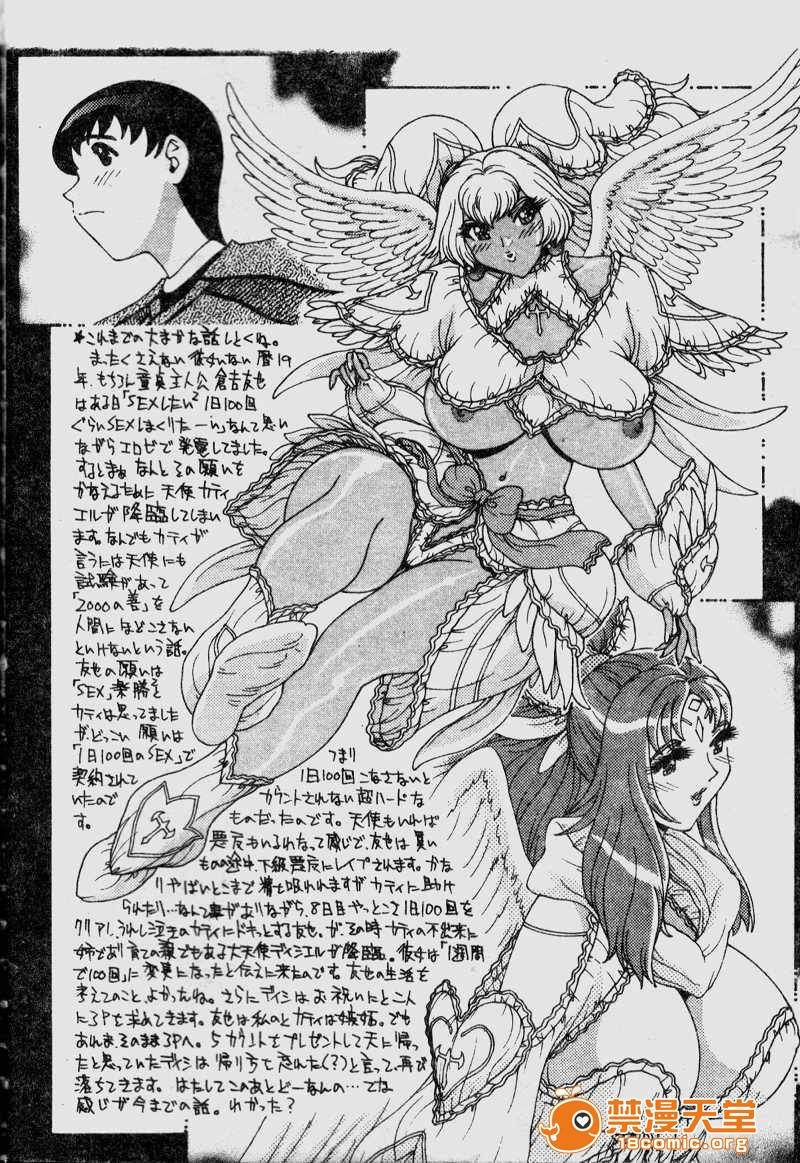 *これまでの大まかな話しとくね。
まったくさえない彼女いない暦19
年、もちろん童貞主人公 倉吉友也
はある日「SEXしたい² 1日100回
ぐらいSEXしまくりたーい」なんて思い
ながらエロゼで発電してました。
するとまあなんとその願いを
かなえるために天使カティ
エルが降臨してしまい
ます。なんでもカティが
言うには天使にも
試験があって
「2000の善」を
人間にほどこさない
といけないという話。
友也の願いは
「SEX」楽勝を
カティは思ってました
が、どっこい願いは
「1日100回のSEX」で
契約されて
いたので
す。
つまり
1日100回こなさないと
カウントされない超ハードな
ものだったのです。天使もいれば
悪魔もいるわなって感じで、友也は買い
もの途中、下級悪魔にレイプされます。かな
りやばいとこまで精士吸われますがカティに助け
られたり…なんて事がありながら、8日目やっとこさ1日100回を
クリアし、うれし泣きのカティにドキッとする友也、が、その時カティの不出来に
姉であり育ての親でもある大天使ディシエルが降臨。彼女は「1週間
で100回」に変更になったと伝えに来たのです 友也の生活を
考えてのこと、よかったね。さらにディシはお祝いにと二人
に3Pを求めてきます。友也は私のとカティは嫉妬。でも
あれまそのまま3Pへ。5カウントもプレゼントして天に帰っ
たと思っていたディシは帰り方を忘れた(?)と言って、再び
落ちてきます。はたしてこのあとどーなんの…てな
感じが今までの話。わかった?
禁漫天堂
18comic.org